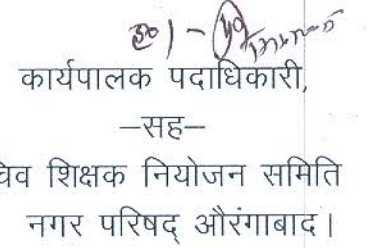 ह० / -
कार्यपालक पदाधिकारी,
–सह–
चिव शिक्षक नियोजन समिति
नगर परिषद् औरंगाबाद।